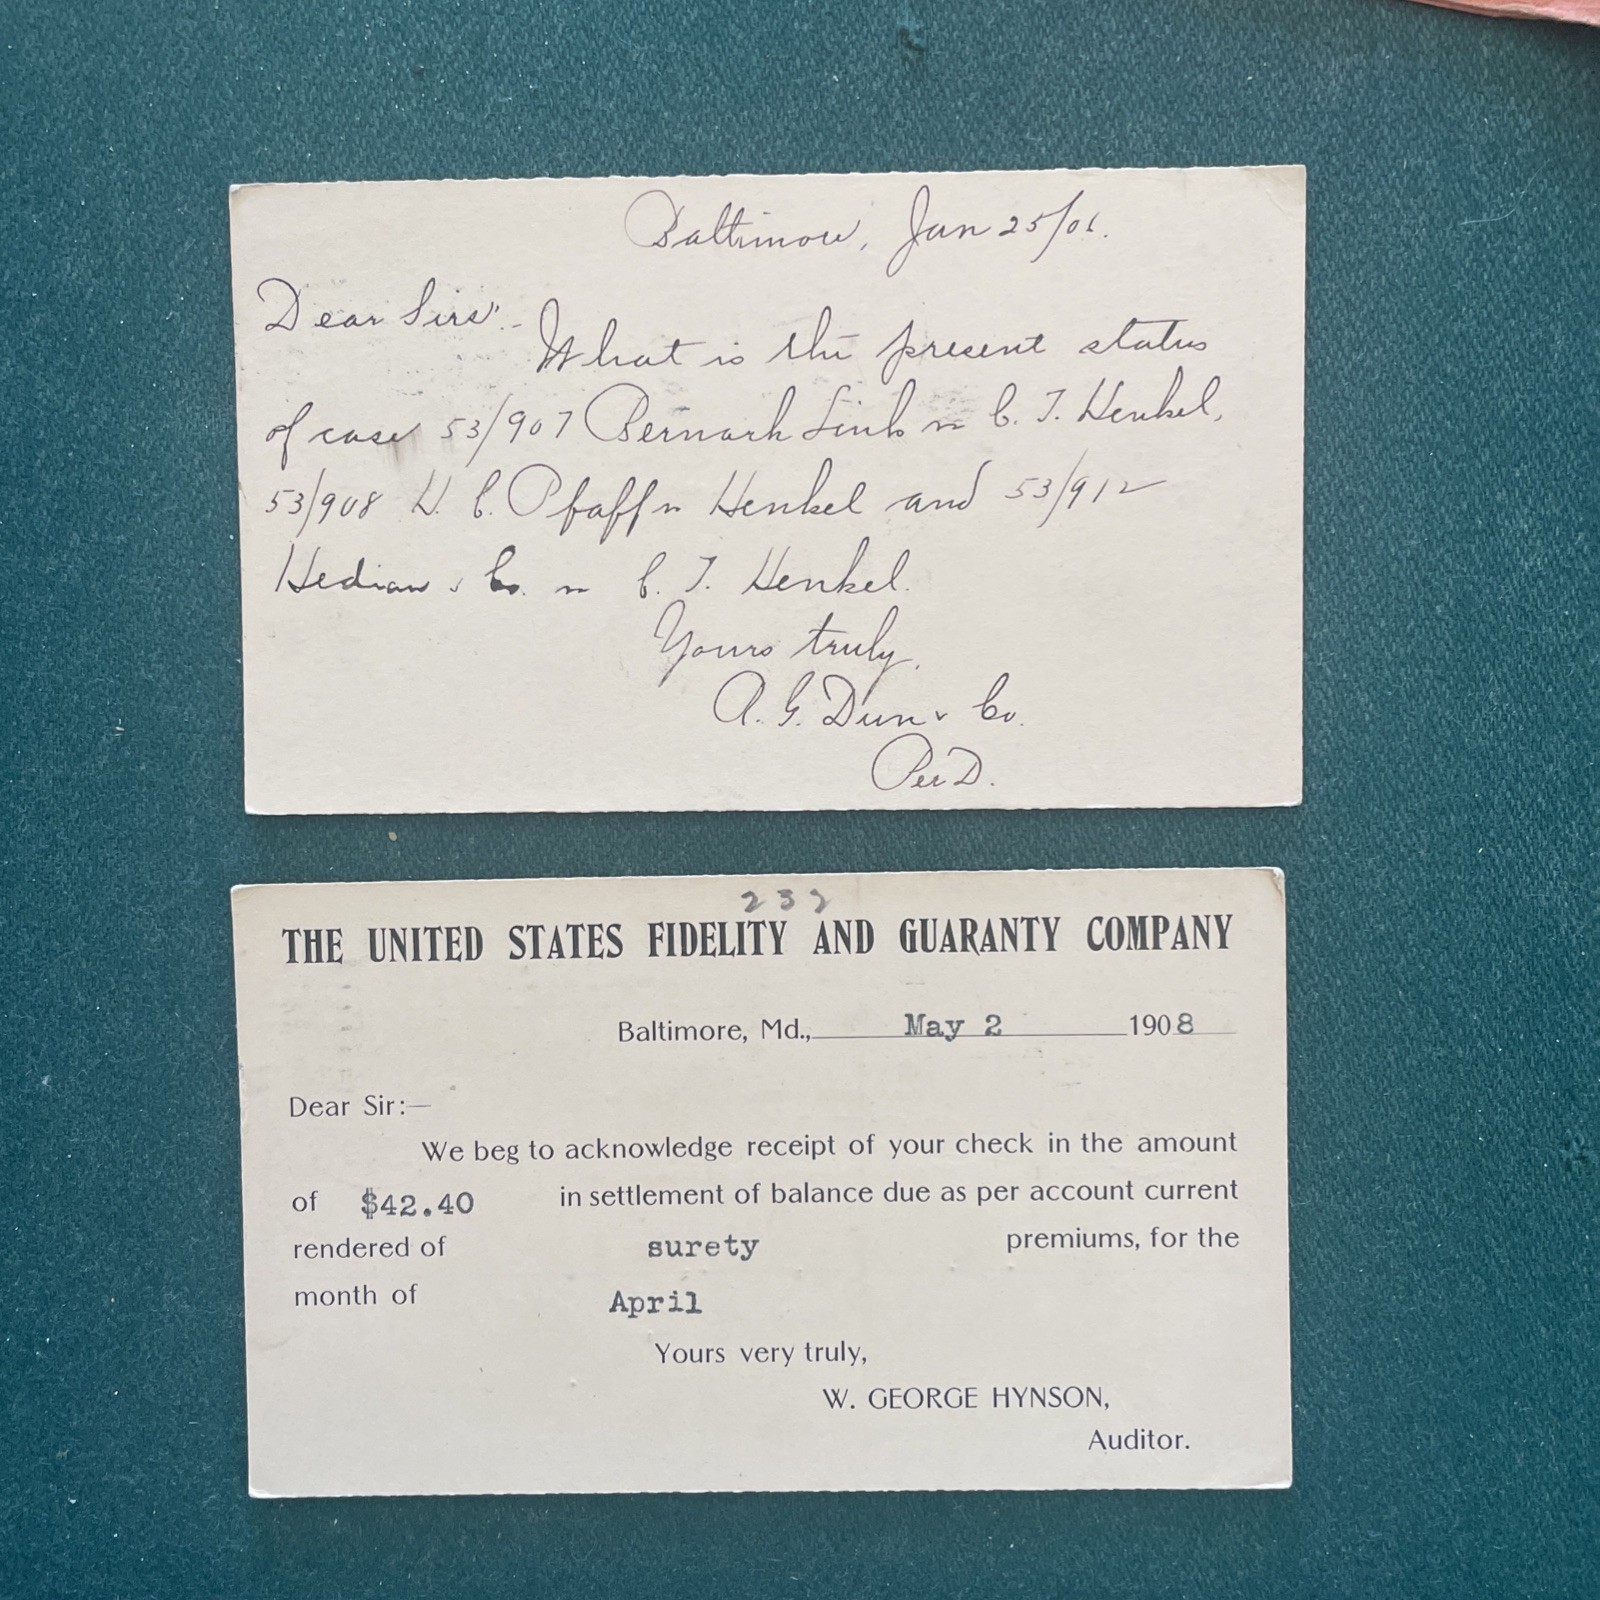 Baltimore, Jan 25/06.
Dear Sirs:-
What is the present status
of case 53/907 Bernard Link vs C. T. Henkel,
53/908 H. C. Pfaff vs Henkel and 53/912
Hedian & Co. vs C. T. Henkel.
Yours truly,
R. G. Dun & Co.
Per D.
232
THE UNITED STATES FIDELITY AND GUARANTY COMPANY
Baltimore, Md., May 2 1908
Dear Sir:—
We beg to acknowledge receipt of your check in the amount
of $42.40 in settlement of balance due as per account current
rendered of surety premiums, for the
month of April
Yours very truly,
W. GEORGE HYNSON,
Auditor.